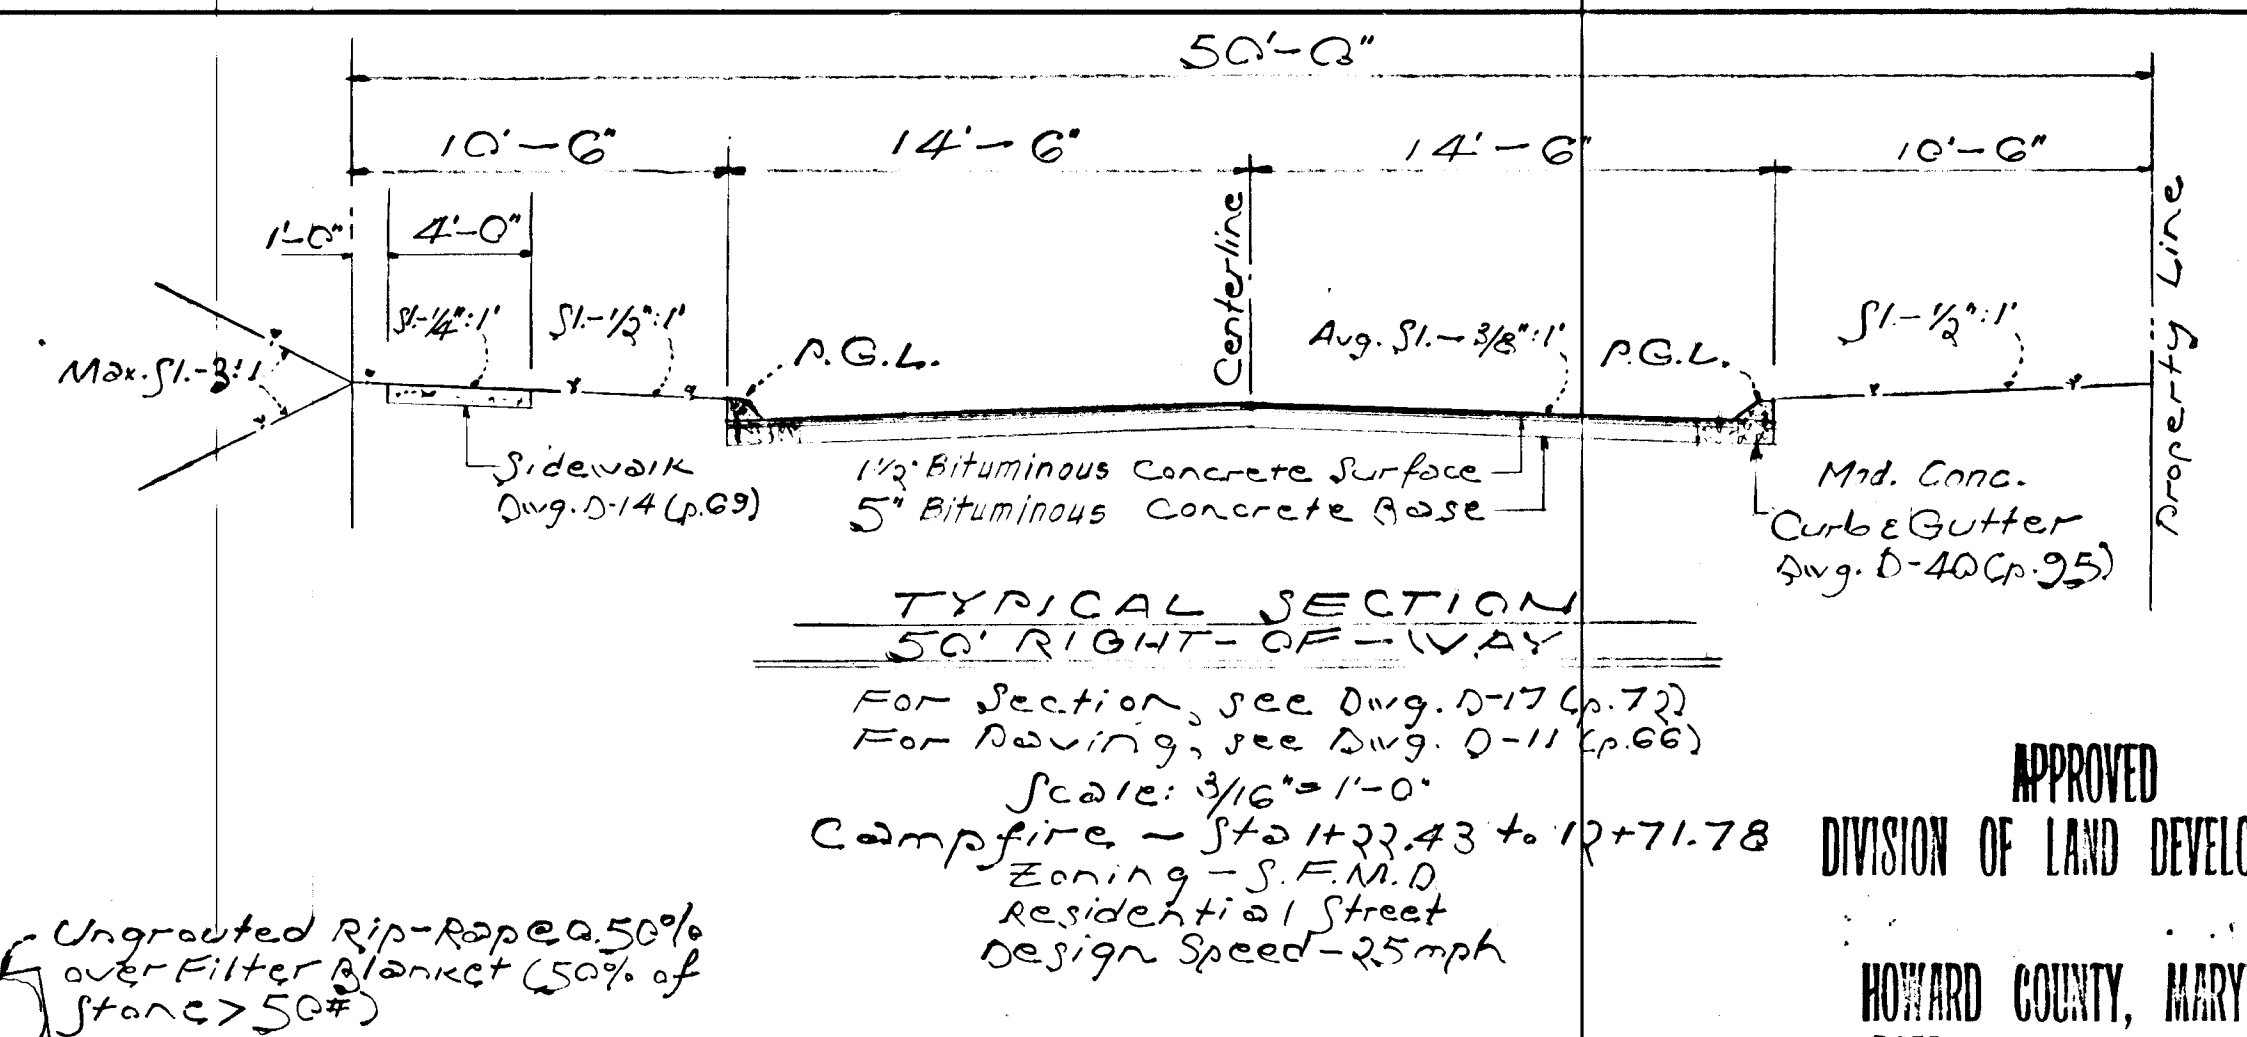 50'-0"
10'-6"
14'-6"
14'-6"
10'-6"
1'-0"
4'-0"
Centerline
Property Line
Sl.-1/4":1'
Sl.-1/2":1'
P.G.L.
Avg. Sl.-3/8":1'
P.G.L.
Sl.-1/2":1'
Max. Sl.-3:1
Sidewalk
Dwg. D-14 (p.69)
1 1/2" Bituminous Concrete Surface
5" Bituminous Concrete Base
Mod. Conc.
Curb & Gutter
Dwg. D-40 (p.95)
TYPICAL SECTION
50' RIGHT-OF-WAY
For Section, see Dwg. D-17 (p.72)
For Paving, see Dwg. D-11 (p.66)
Scale: 3/16"=1'-0"
Campfire - Sta 1+22.43 to 12+71.78
Zoning - S.F.M.D
Residential Street
Design Speed - 25 mph
Ungrouted Rip-Rap @ 0.50%
over Filter Blanket (50% of
Stone > 50#)
APPROVED
DIVISION OF LAND DEVELO
HOWARD COUNTY, MARY